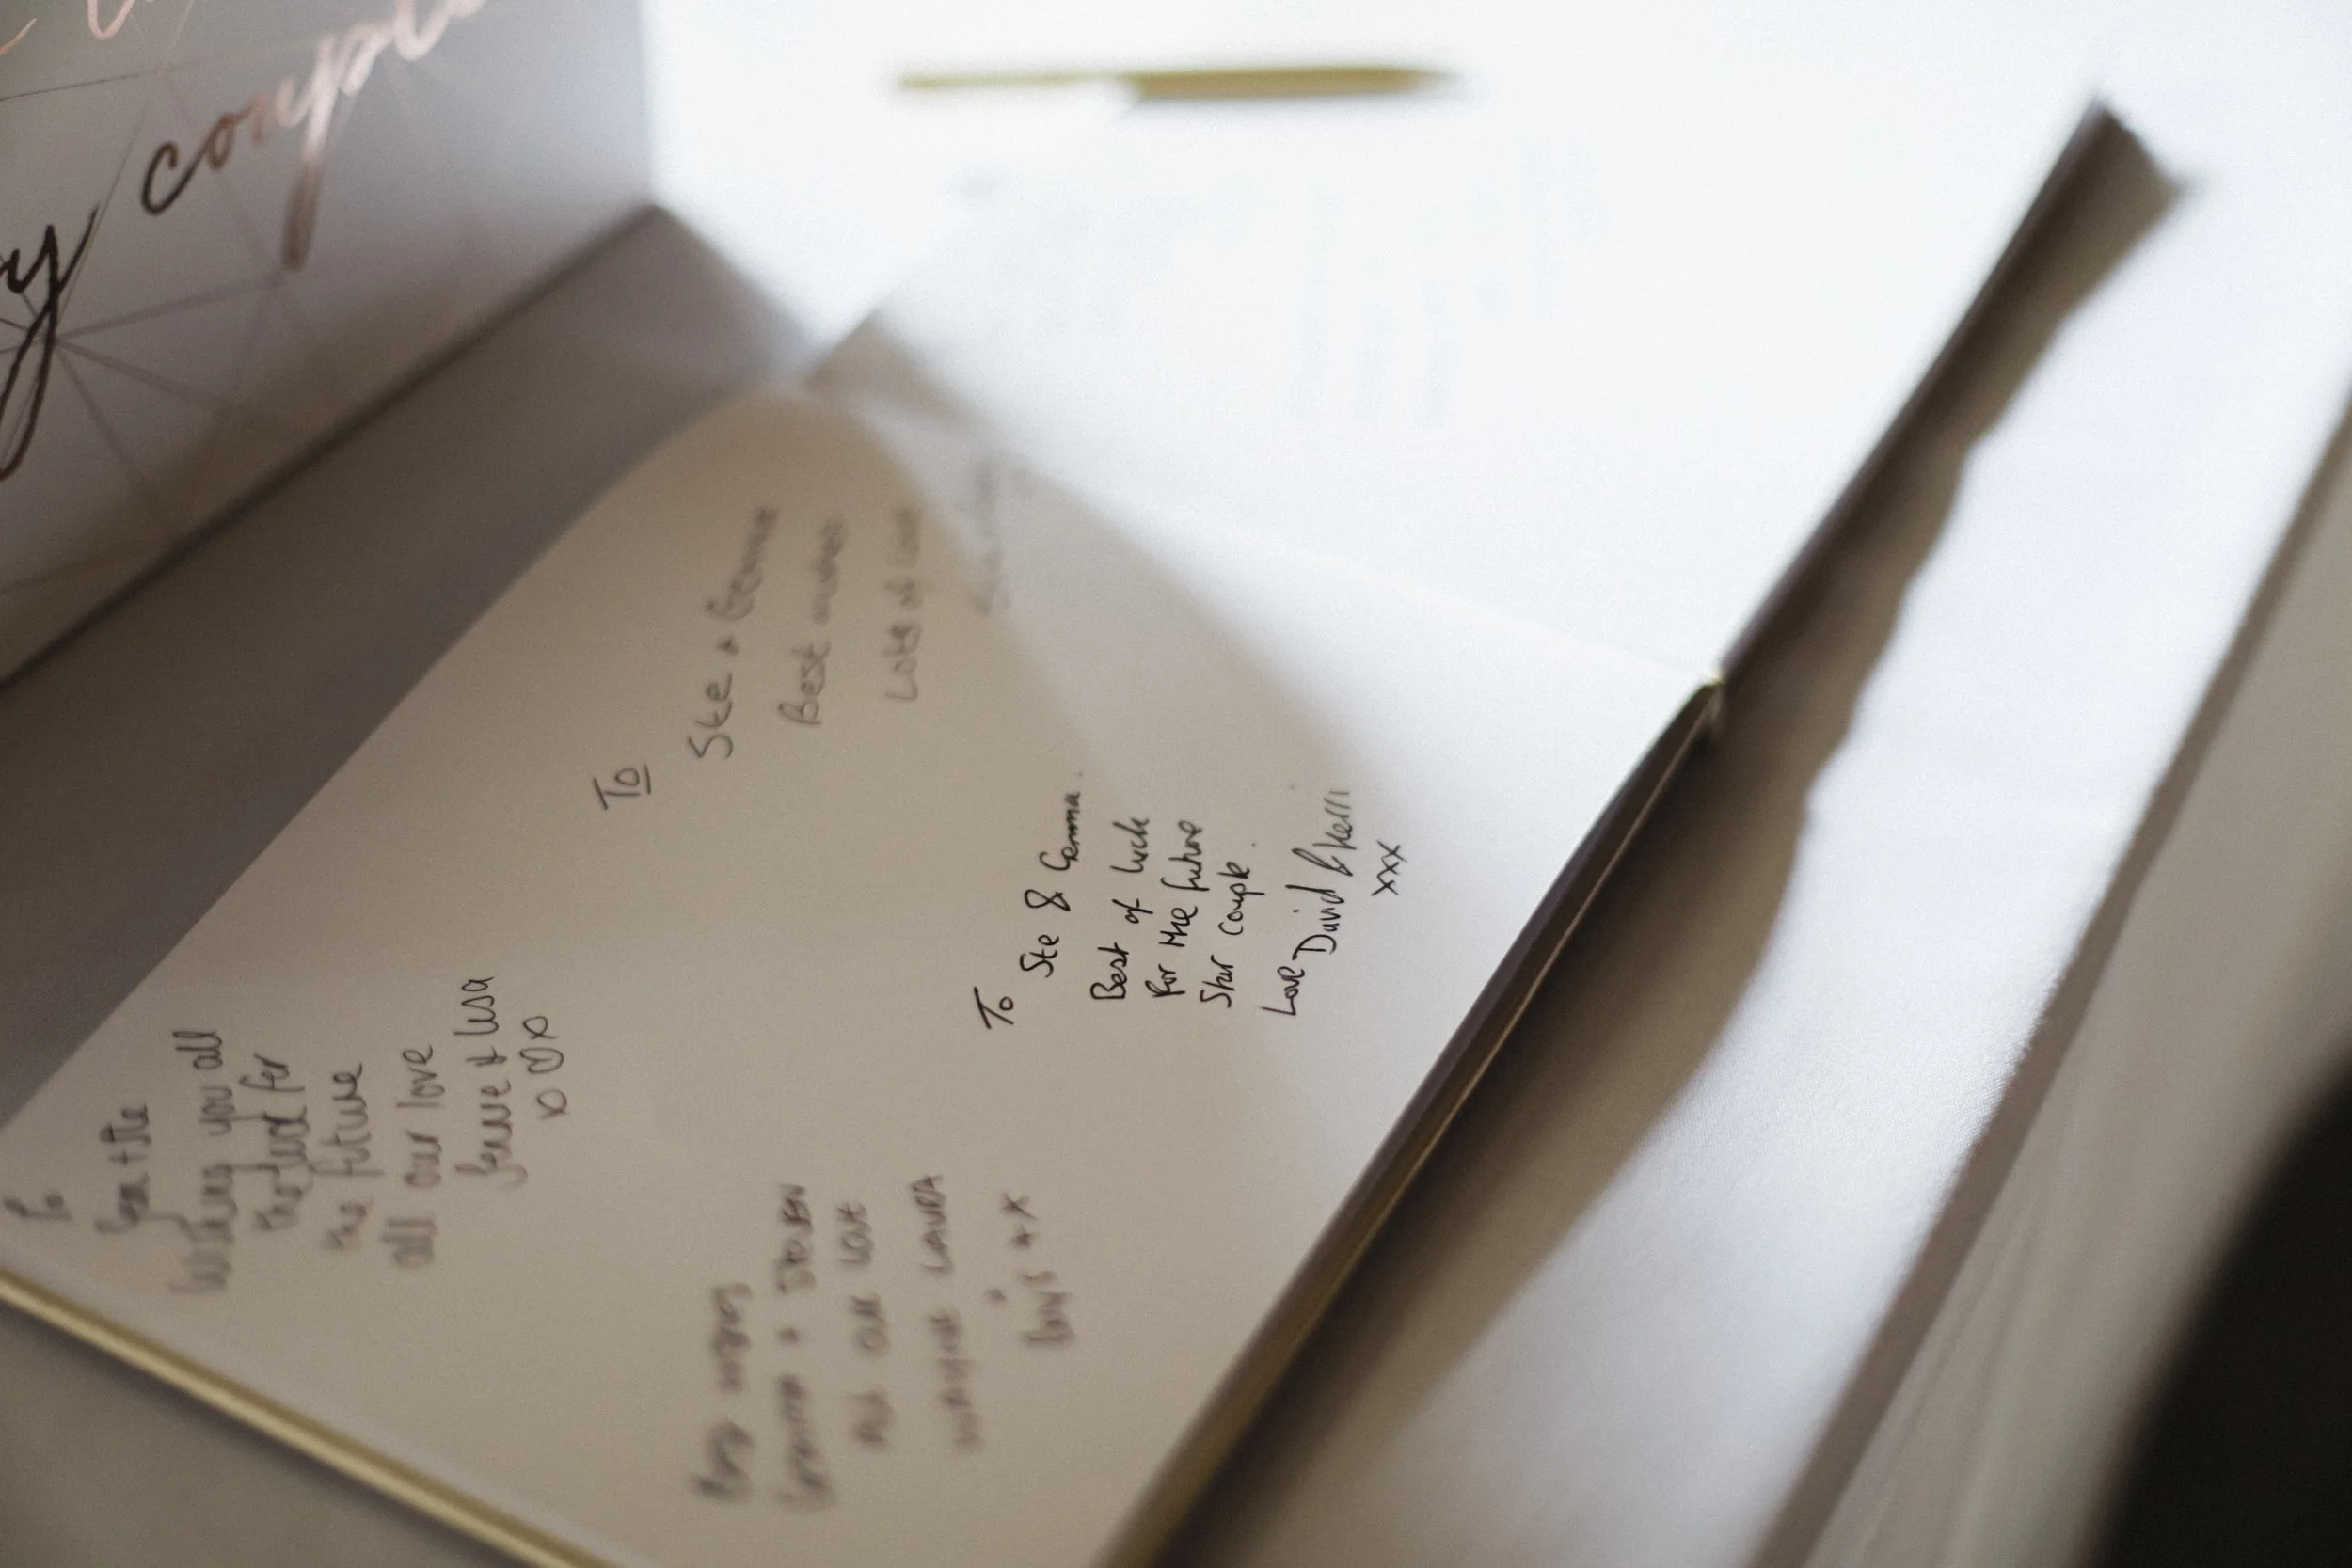 y couple
To
Ste + Gemma
Best wishes
Lots of love
To
Ste & Gemma.
Best of luck
For the future
Star couple.
Love David & Kerri
xxx
To
Gem + Ste
Wishing you all
the luck for
the future
all our love
& Lisa
Best wishes
Gemma + Steven
All our love
Laura